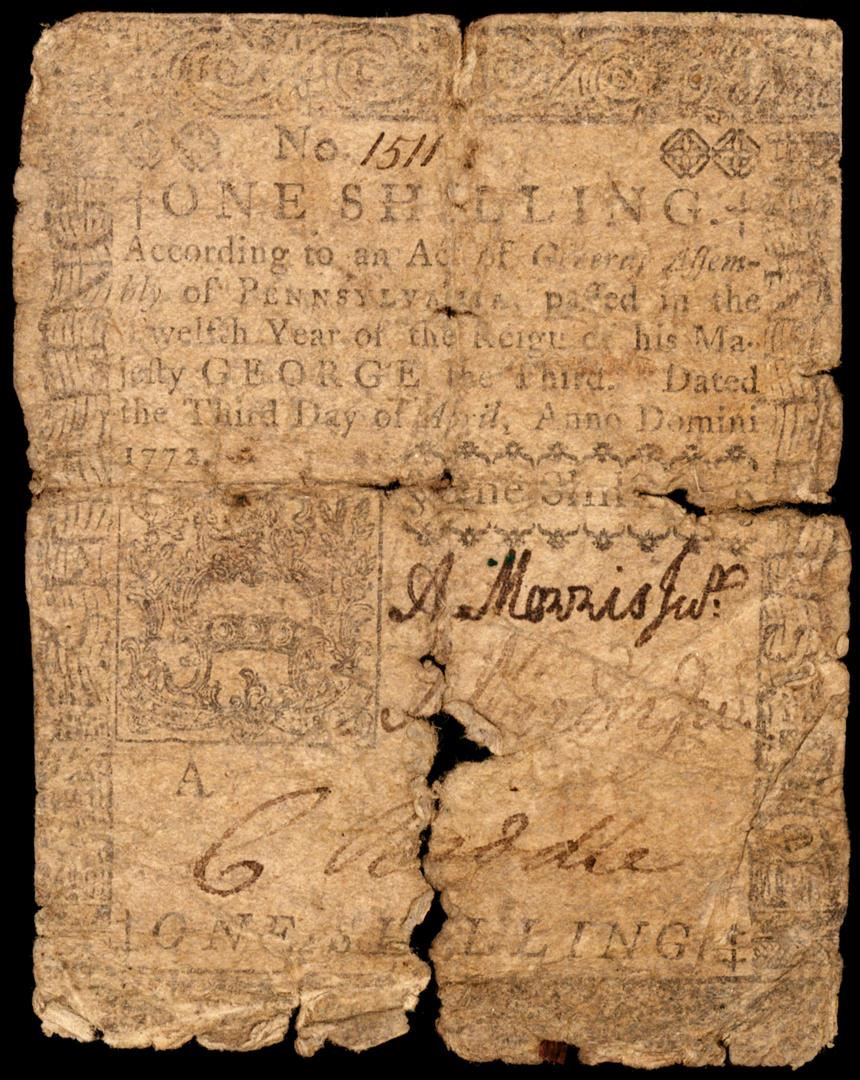 No. 1511
ONE SHILLING.
According to an Act of General Assem-
bly of PENNSYLVANIA, passed in the
Twelfth Year of the Reign of his Ma-
jesty GEORGE the Third. Dated
the Third Day of April, Anno Domini
1772.
One Shilling
A Morris Junr
A
C Biddle
ONE SHILLING